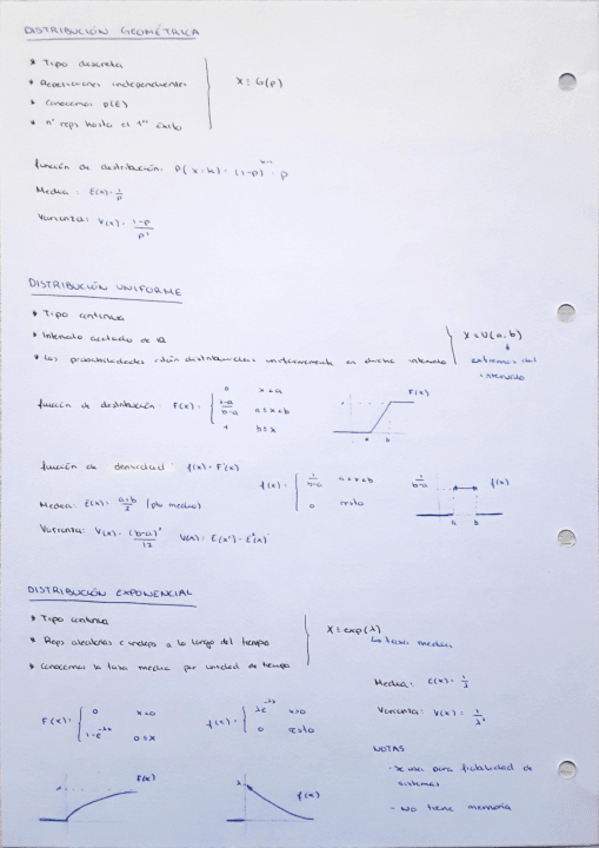 DISTRIBUCIÓN GEOMÉTRICA
* Tipo discreta
* Repeticiones independientes
* Conocemos p(E)
* nº reps hasta el 1er éxito
X ≡ G(p)
función de distribución: P(X=k) = (1-p)^(k-1) · p
Media: E(x) = 1/p
Varianza: V(x) = (1-p)/p²
DISTRIBUCIÓN UNIFORME
* Tipo continua
* Intervalo acotado de ℝ
* Las probabilidades están distribuidas uniformemente en dicho intervalo
X ≡ U(a,b)
extremos del
intervalo
función de distribución: F(x) = { 0 x<a
(x-a)/(b-a) a≤x<b
1 b≤x
F(x)
1
a b
función de densidad: f(x) = F'(x)
f(x) = { 1/(b-a) a<x<b
0 resto
1/(b-a)
f(x)
a b
Media: E(x) = (a+b)/2 (pto medio)
Varianza: V(x) = (b-a)²/12 V(x) = E(x²) - E²(x)
DISTRIBUCIÓN EXPONENCIAL
* Tipo continua
* Reps aleatorias e indeps a lo largo del tiempo
* Conocemos la tasa media por unidad de tiempo
X ≡ exp(λ)
La tasa media
Media: E(x) = 1/λ
Varianza: V(x) = 1/λ²
F(x) = { 0 x<0
1-e^(-λx) 0≤x
f(x) = { λe^(-λx) x>0
0 resto
F(x)
λ
f(x)
NOTAS
- se usa para fiabilidad de
sistemas
- No tiene memoria